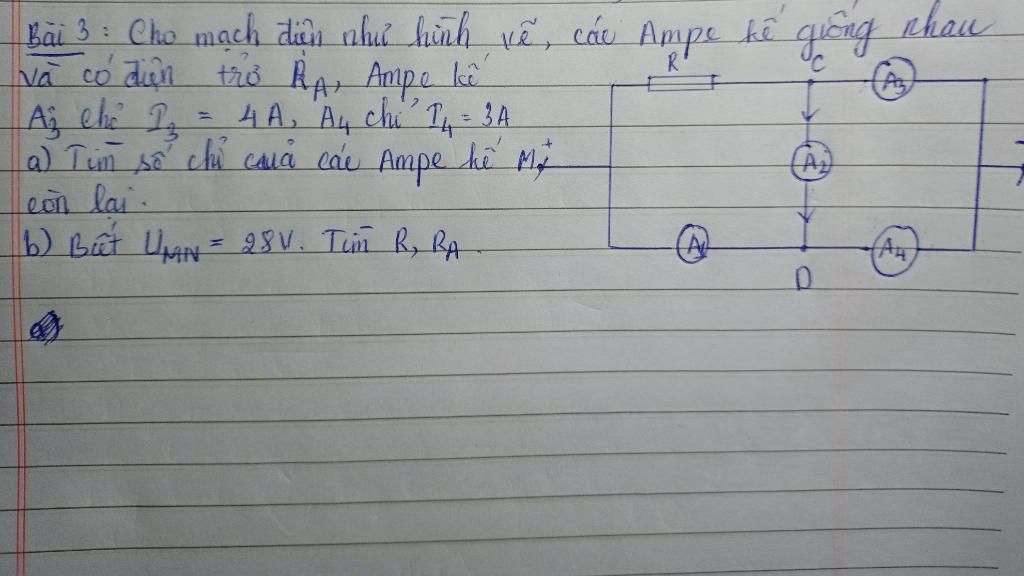 Bài 3 : Cho mạch điện như hình vẽ, các Ampe kế giống nhau
và có điện trở RA, Ampe kế
A3 chỉ I3 = 4A, A4 chỉ I4 = 3A
a) Tìm số chỉ của các Ampe kế
còn lại.
b) Biết UMN = 28V. Tìm R, RA.
R
C
A3
M +
A2
-
A1
A4
D